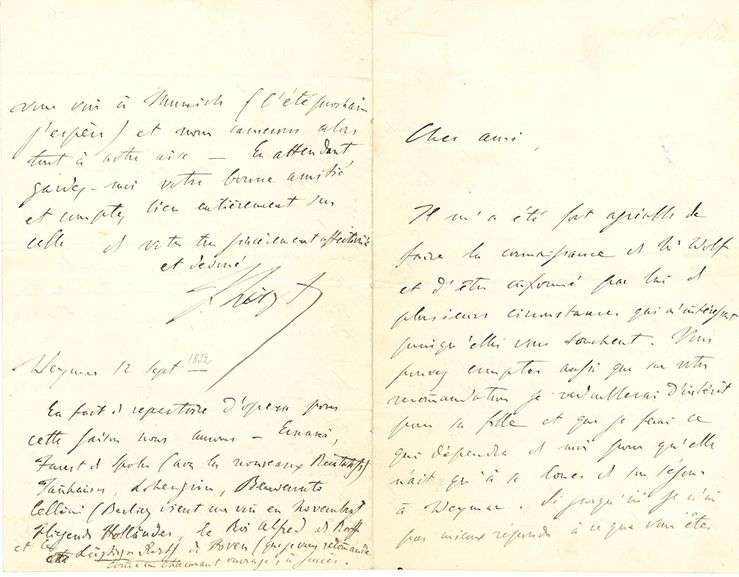 Cher ami,
Il m'a été fort agréable de
faire la connaissance de Mr Wolf
et d'être informé par lui de
plusieurs circonstances qui m'intéressent
puisqu'elles vous touchent. Vous
pouvez compter aussi que sur votre
recommandation je d'intérêt
pour sa fille et que je ferai ce
qui dépendra de moi pour qu'elle
n'ait qu'à se louer de son séjour
à Weymar. Si jusqu'ici je n'ai
pas mieux répondu à ce que vous êtes
vous voir à Munich (l'été prochain
j'espère) et nous causerons alors
tout à notre aise — En attendant
gardez-moi votre bonne amitié
et comptez bien entièrement sur
celle de votre très sincèrement affectionné
et dévoué
F. Liszt
Weymar 12 Sept 1852
En fait de repertoire d'opera pour
cette saison nous aurons — Ernani,
Faust de Spohr (avec les nouveaux Récitatifs)
Tanhauser, Lohengrin, Benvenuto
Cellini (Berlioz vient en Novembre)
Fliegende Holländer, le Roi Alfred de Raff
et les de (que je vous recommande
comme charmant ouvrage, à succès.